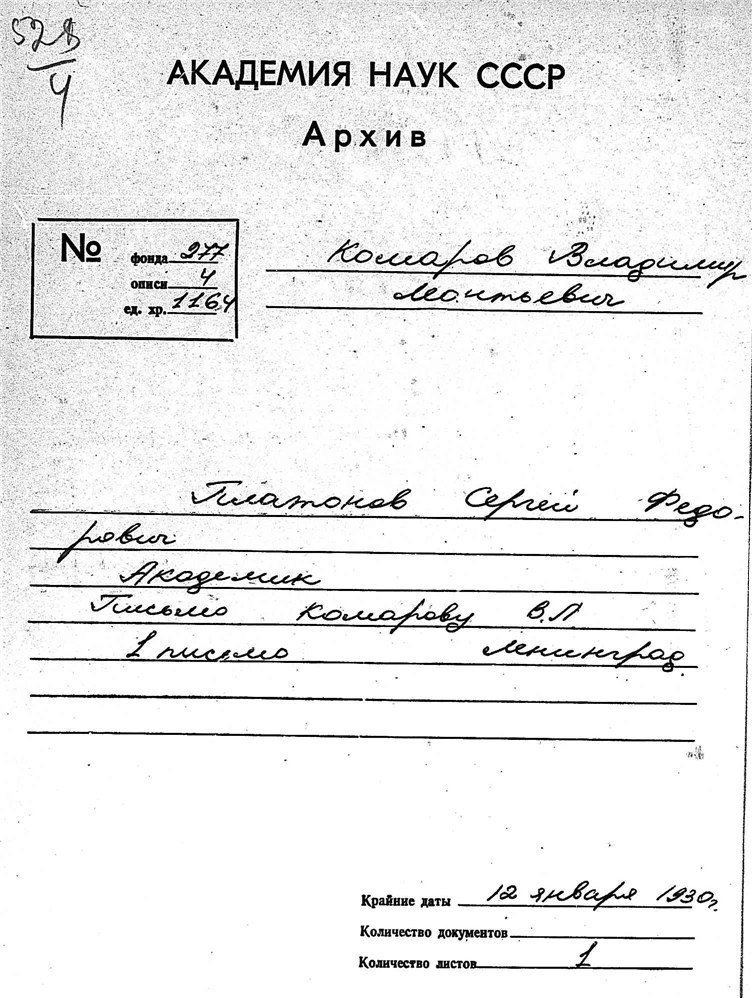 528
4
АКАДЕМИЯ НАУК СССР
Архив
№ фонда 277
описи 4
ед. хр. 1164
Комаров Владимир
Леонтьевич
Платонов Сергей Федо-
рович
Академик
Письмо Комарову В.Л.
1 письмо Ленинград.
Крайние даты 12 января 1930г.
Количество документов
Количество листов 1